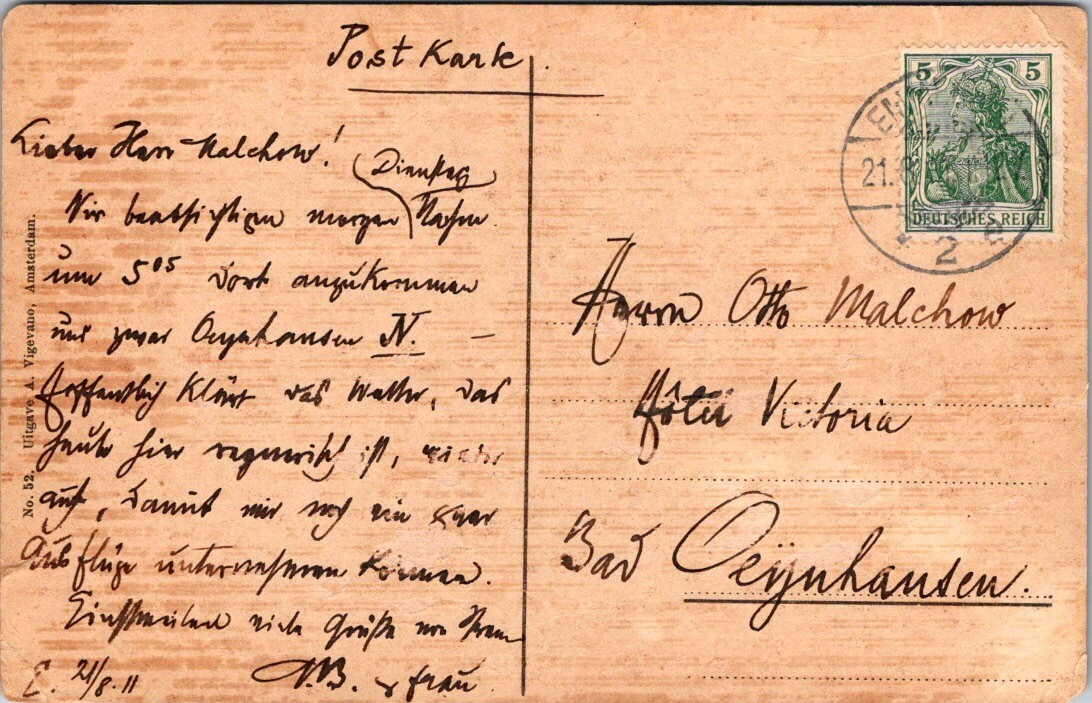 Postkarte.
Lieber Herr Malchow!
(Dienstag)
Wir beabsichtigen morgen Nachm.
um 5⁰⁵ dort anzukommen
und zwar Oeynhausen N. —
Hoffentlich klärt das Wetter, das
heute hier regnerisch ist, wieder
auf, damit wir noch ein paar
Ausflüge unternehmen können.
Einstweilen viele Grüße von Ihrem
E. 21/8.11
& Frau
No. 52, Uitgave A. Vigevano, Amsterdam.
5 5
DEUTSCHES REICH
21.
2
Herrn Otto Malchow
Hôtel Victoria
Bad Oeynhausen.